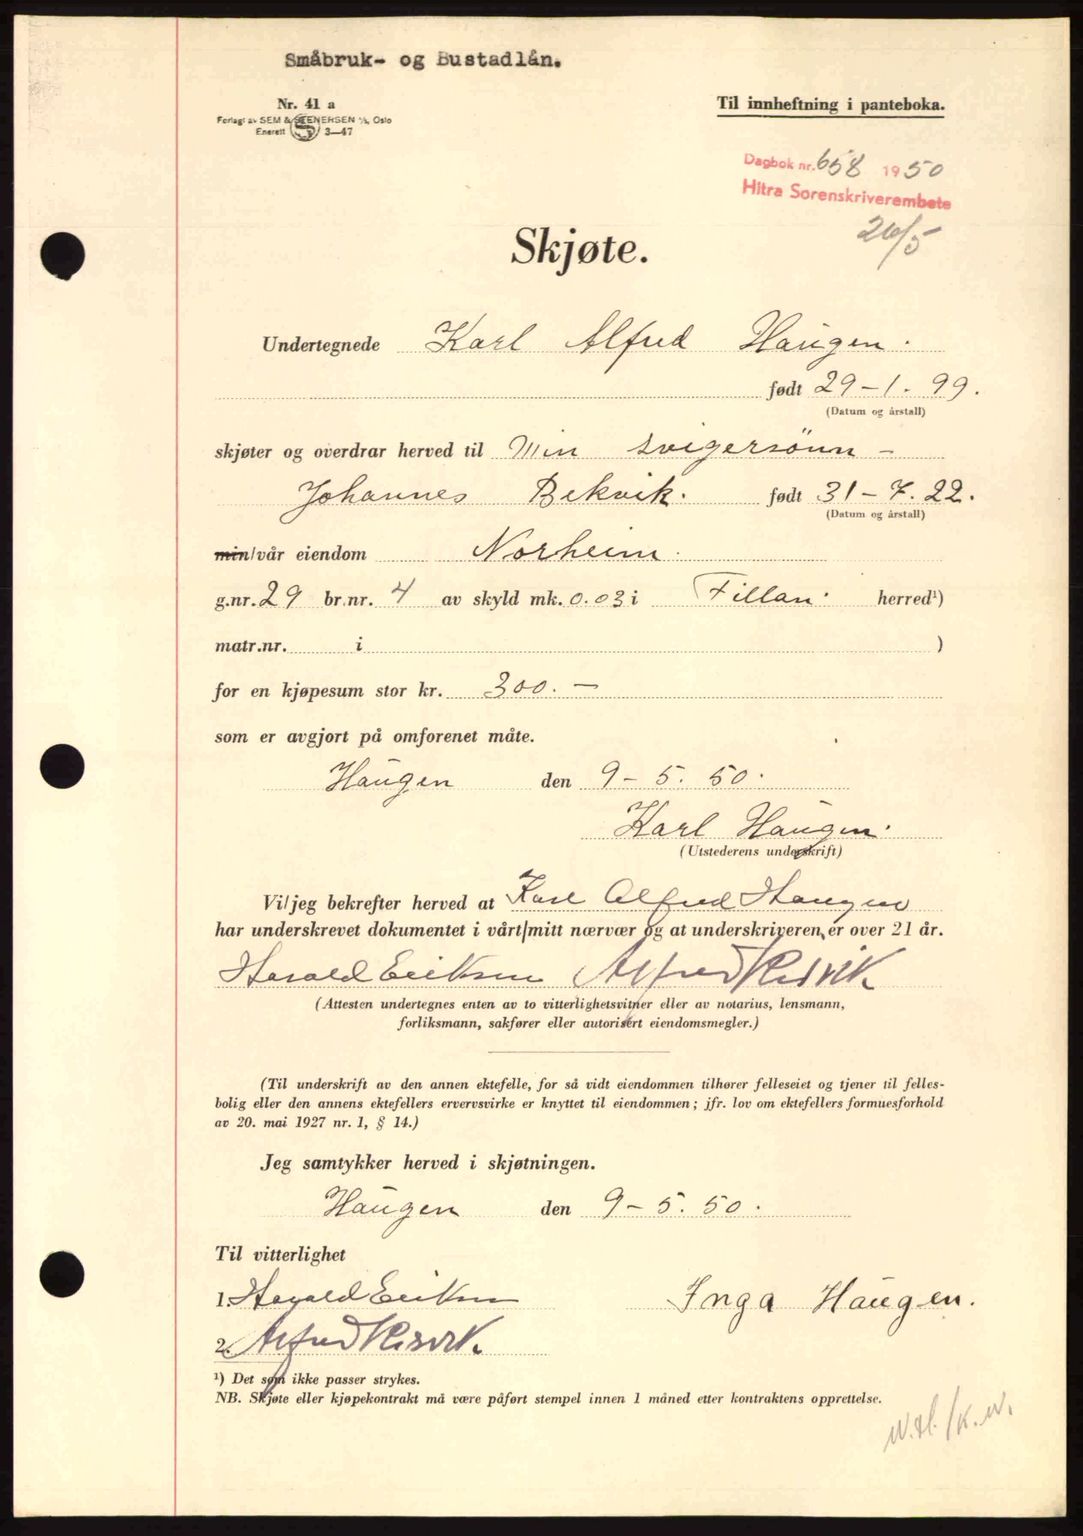 Småbruk- og Bustadlån.
Nr. 41 a
Forlagt av SEM & STENERSEN A/S, Oslo
Enerett S 3—47
Til innheftning i panteboka.
Dagbok nr. 658 1950
Hitra Sorenskriverembete
26/5
Skjøte.
Undertegnede Karl Alfred Haugen.
født 29-1. 99.
(Datum og årstall)
skjøter og overdrar herved til Min svigersönn -
Johannes Bekvik. født 31-7. 22.
(Datum og årstall)
min/vår eiendom Norheim.
g.nr. 29 br.nr. 4 av skyld mk. 0.03 i Fillan. herred¹)
matr.nr. i )
for en kjøpesum stor kr. 300.-
som er avgjort på omforenet måte.
Haugen den 9-5. 50.
Karl Haugen.
(Utstederens underskrift)
Vi/jeg bekrefter herved at Karl Alfred Haugen
har underskrevet dokumentet i vårt/mitt nærvær og at underskriveren er over 21 år.
Harald Eriksen Alfred
(Attesten undertegnes enten av to vitterlighetsvitner eller av notarius, lensmann,
forliksmann, sakfører eller autorisert eiendomsmegler.)
(Til underskrift av den annen ektefelle, for så vidt eiendommen tilhører felleseiet og tjener til felles-
bolig eller den annens ektefellers ervervsvirke er knyttet til eiendommen; jfr. lov om ektefellers formuesforhold
av 20. mai 1927 nr. 1, § 14.)
Jeg samtykker herved i skjøtningen.
Haugen den 9-5. 50.
Til vitterlighet
1. Harald Eriksen Inga Haugen.
2. Alfred
¹) Det som ikke passer strykes.
NB. Skjøte eller kjøpekontrakt må være påført stempel innen 1 måned etter kontraktens opprettelse.